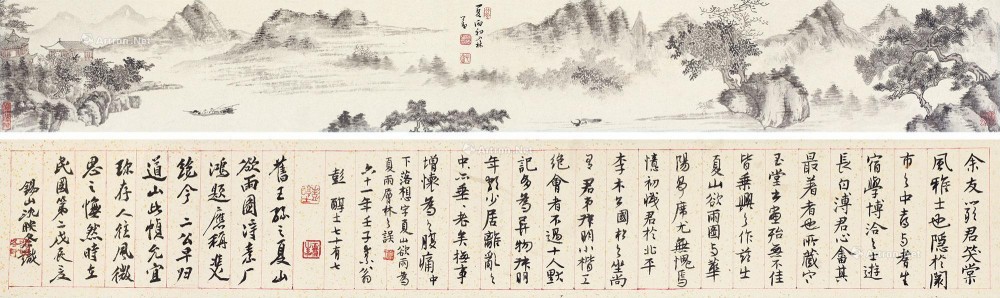 夏雨初
余友嚴君笑棠
風雅士也隱於闤
市之中喜与耆生
宿學博洽之士遊
長白溥君心畬其
最著者也所藏
玉堂書畫殆無不佳
皆乘興之作茲
夏山欲雨圖与華
陽易庸尤無愧焉
憶初識君於北平
李木公國松之坐尚
有君弟明小楷工
絕會者不過十人默
記多為异物明
年少居離亂之
中亦垂之老矣事
增懷為之腹痛中
下落想字夏山欲雨為
夏雨層林之誤
六十一年壬子素翁
彭醇士七十有七
舊王孫之夏山
欲雨圖詩素厂
鴻題應稱雙
絕今二公早歸
道山此幀允宜
珍存人往風微
思之憮然時在
民國第二戊辰
錫山沈映冬識